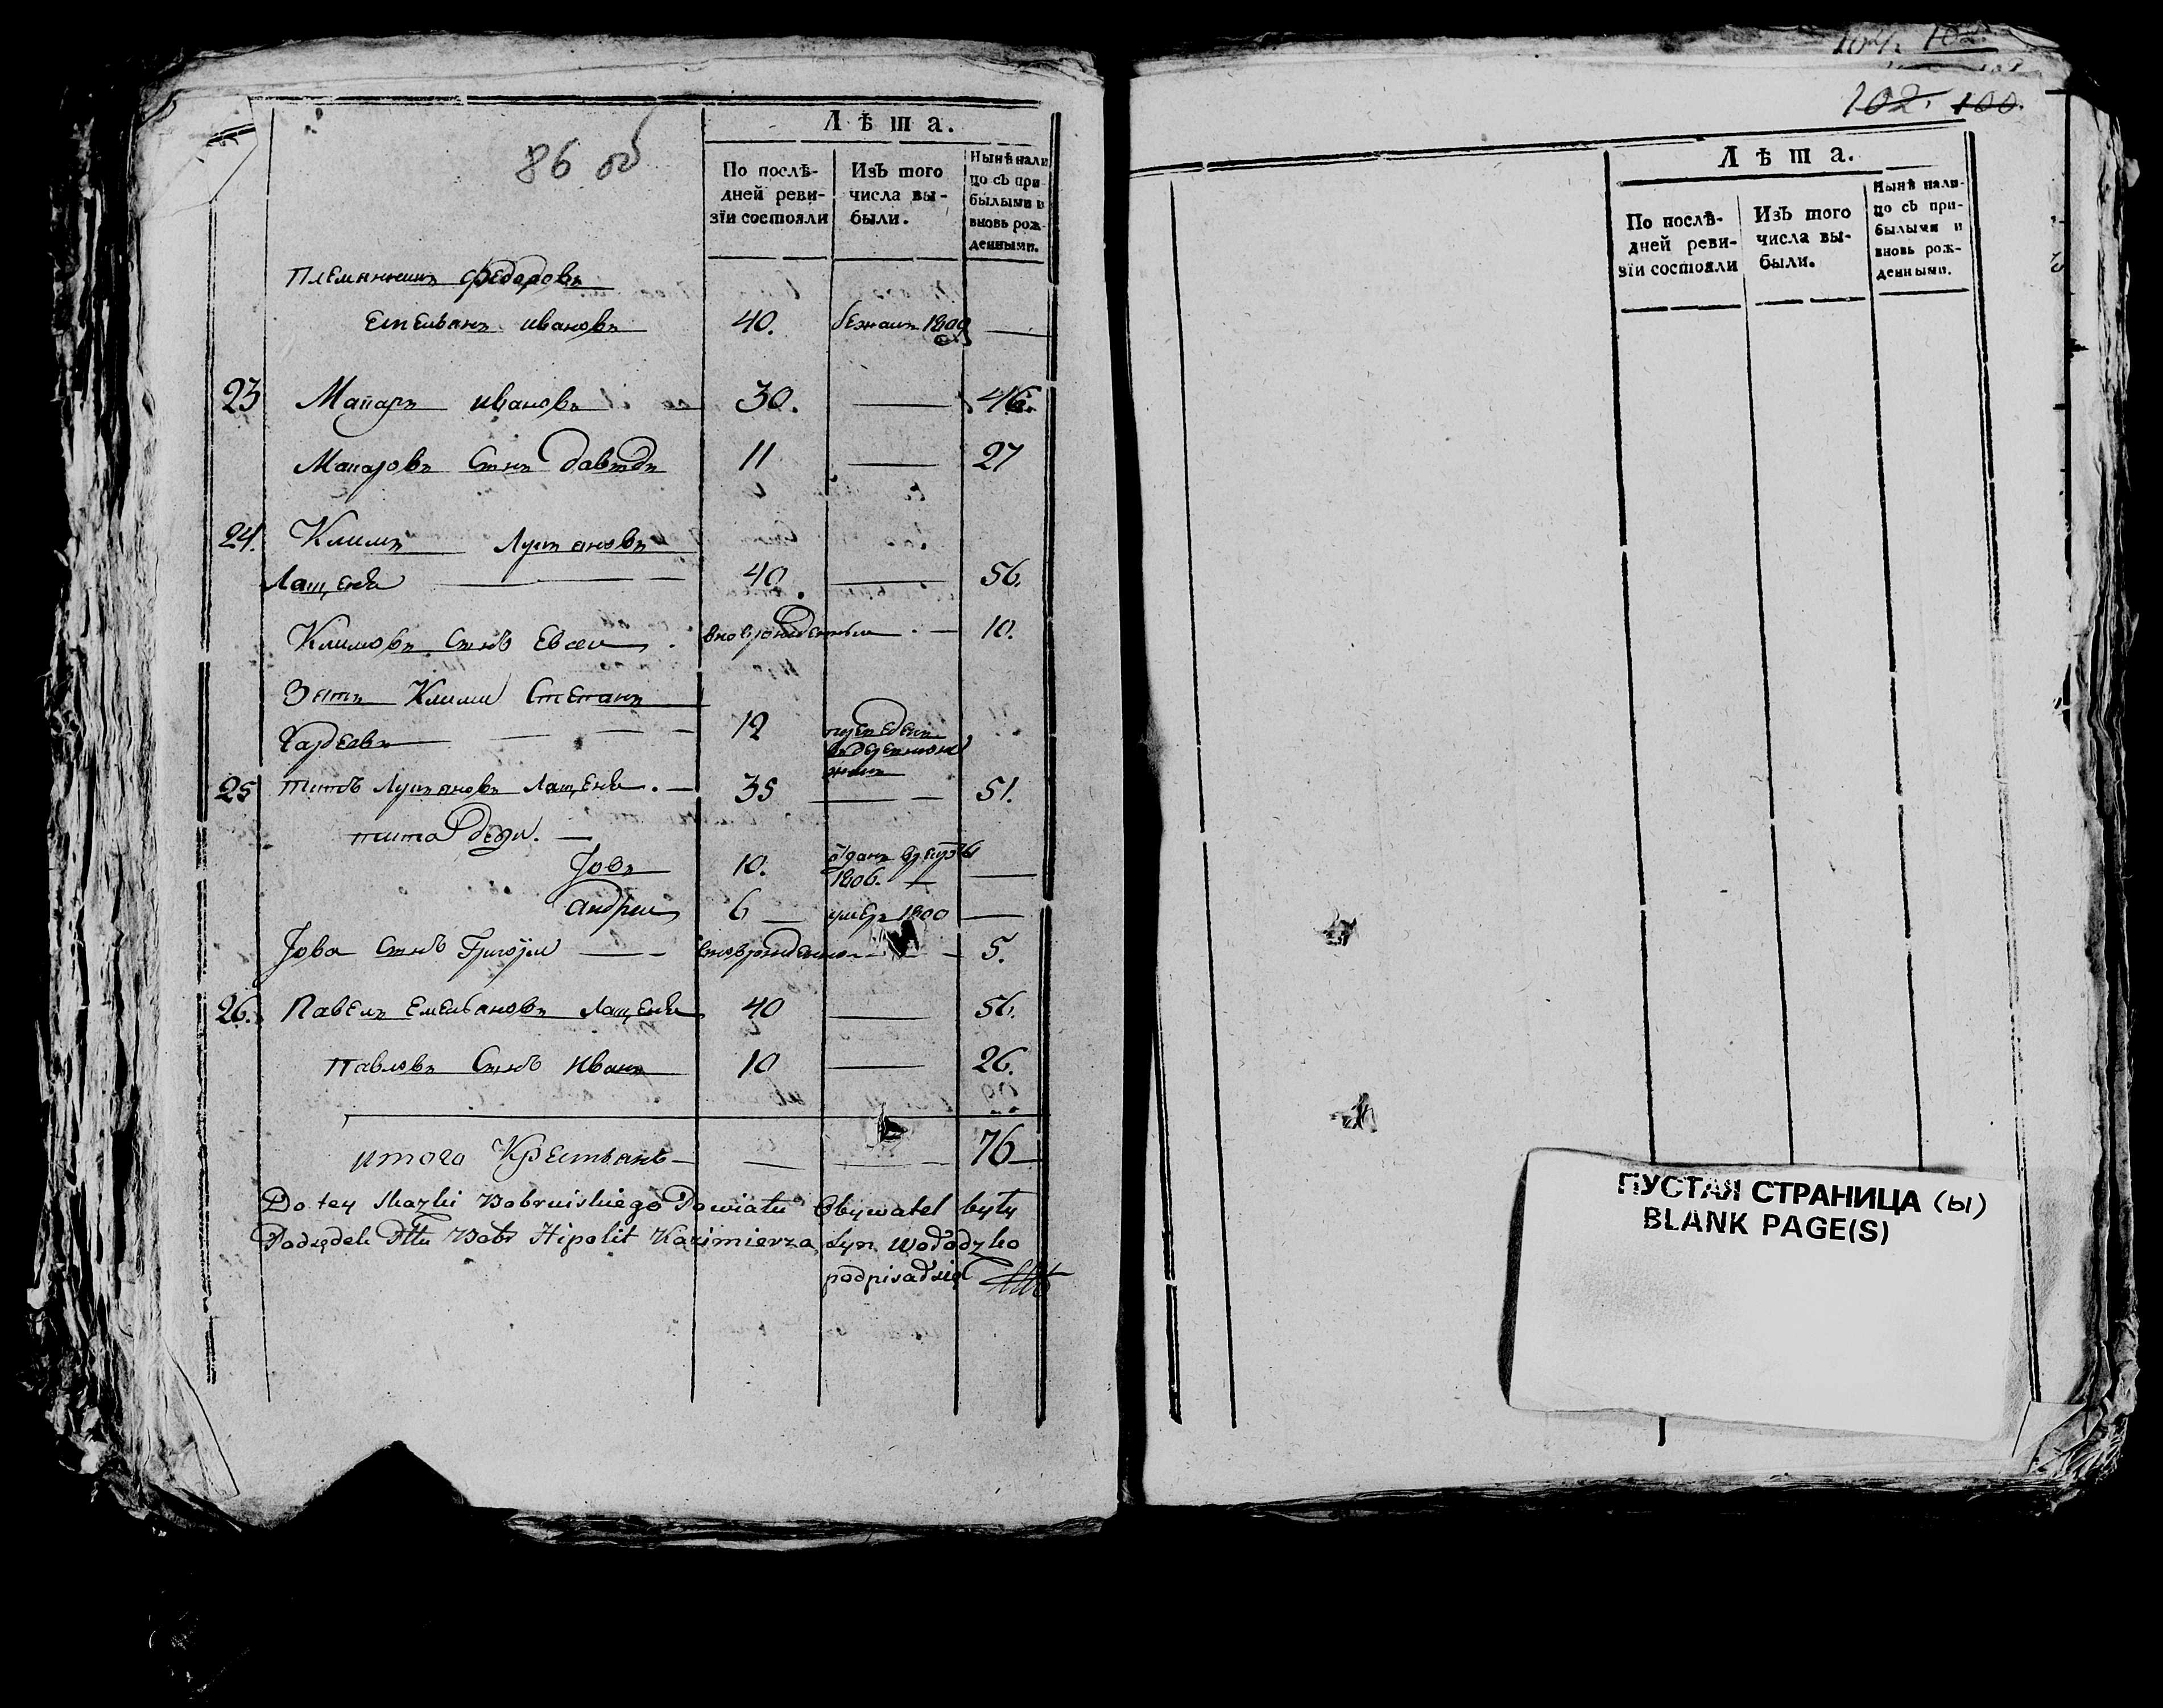 86 об
Лѣта.
По послѣ-
дней реви-
зїи состояли
Изъ того
числа вы-
были.
Нынѣ нали
цо съ при
былыми и
вновь рож-
денными.
Племянникъ Федоровъ
Емельянъ Ивановъ 40. бежалъ 1809 —
23 Макаръ Ивановъ 30. — 46
Макаровъ Сынъ Давыдъ 11 — 27
24. Климъ Лукъяновъ
Лащенко — 40. — 56.
Климовъ Сынъ Евсей. вновьрожденный. — 10.
Зять Клима Степанъ
Гардеевъ — 12
25 Титъ Лукъяновъ Лащенко. — 35 — 51.
Тита дети. —
Іовъ 10. отданъ в рекруты 1806. —
Андрей 6 — умеръ 1800 —
Іова Сынъ Григорей — вновьрожденный — 5.
26. Павелъ Емельяновъ Лащенко 40 — 56.
Павловъ Сынъ Иванъ 10 — 26.
итого Крестьянъ — 76
Do tey skazki Bobruiskiego Powiatu Obywatel były
Hipolit Kazimierza syn Wołodzko
podpisał się
102. 100.
Лѣта.
По послѣ-
дней реви-
зїи состояли
Изъ того
числа вы-
были.
Нынѣ нали-
цо съ при-
былыми и
вновь рож-
денными.
ПУСТАЯ СТРАНИЦА (Ы)
BLANK PAGE(S)